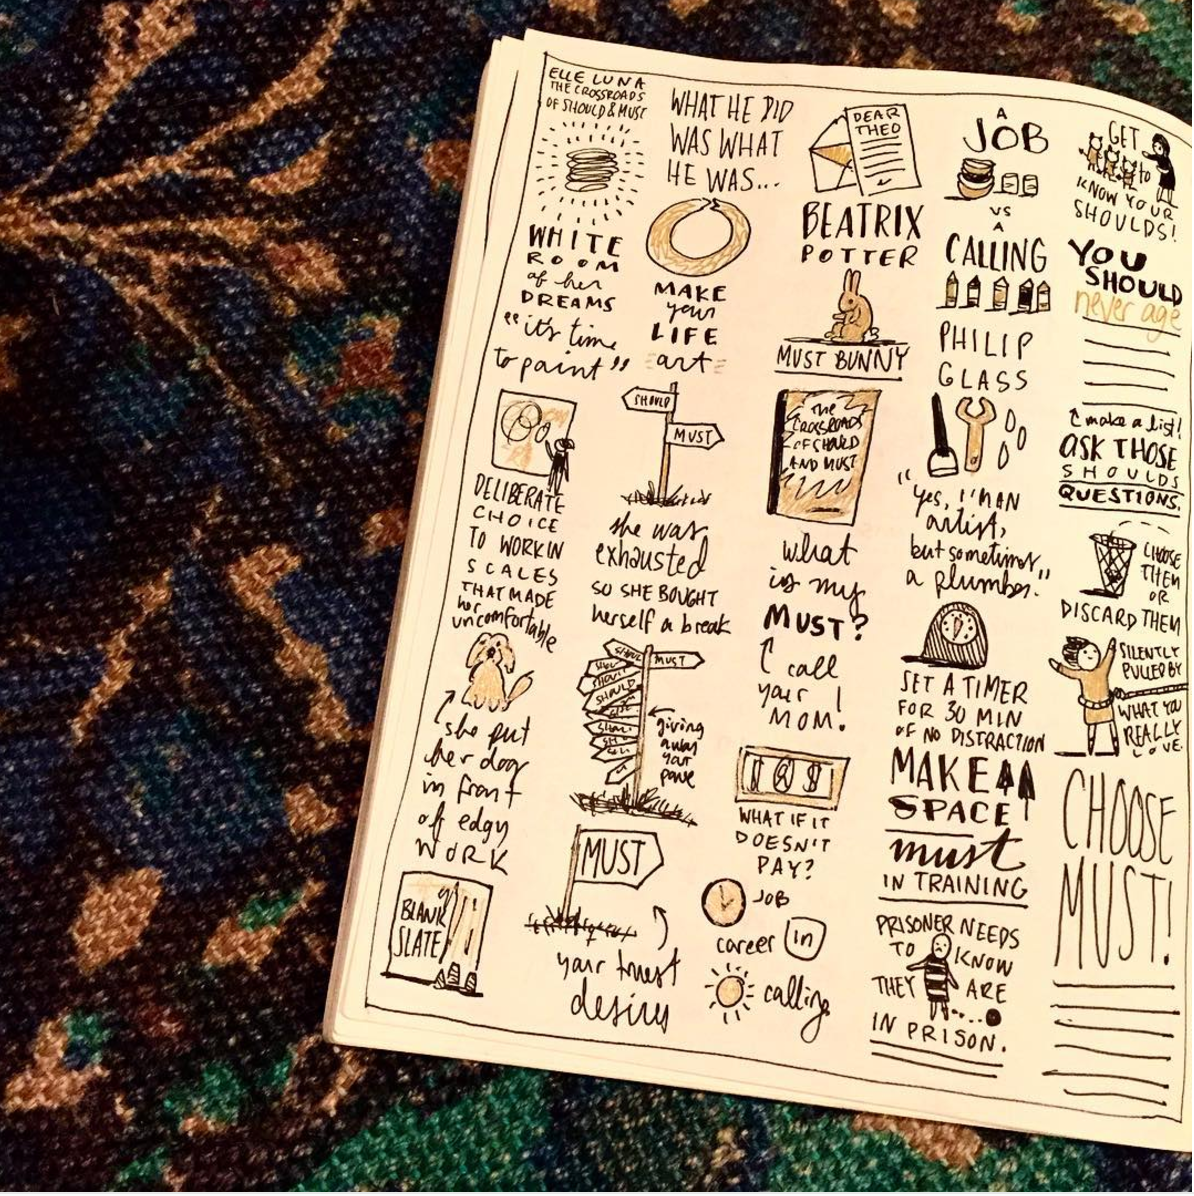 ELLE LUNA
THE CROSSROADS
OF SHOULD & MUST
WHITE
ROOM
of her
DREAMS
"it's time
to paint"
DELIBERATE
CHOICE
TO WORK IN
SCALES
THAT MADE
her
uncomfortable
she put
her dog
in front
of edgy
WORK
BLANK
SLATE
WHAT HE DID
WAS WHAT
HE WAS...
MAKE
your
LIFE
art
SHOULD
MUST
she was
exhausted
SO SHE BOUGHT
herself a break
SHOULD
MUST
SHOULD
SHOULD
giving
away
your
MUST
your truest
desires
DEAR
THEO
BEATRIX
POTTER
MUST BUNNY
THE
CROSSROADS
OF SHOULD
AND MUST
what
is my
MUST?
call
your
MOM!
WHAT IF IT
DOESN'T
PAY?
JOB
career in
calling
A
JOB
VS
A
CALLING
PHILIP
GLASS
"Yes, I'M AN
artist,
but sometimes
a plumber."
SET A TIMER
FOR 30 MIN
OF NO DISTRACTION
MAKE
SPACE
must
IN TRAINING
PRISONER NEEDS
TO KNOW
THEY ARE
IN PRISON.
GET
to
KNOW YOUR
SHOULDS!
YOU
SHOULD
never age
make a list!
ASK THOSE
SHOULDS
QUESTIONS.
CHOOSE
THEM
OR
DISCARD THEM
SILENTLY
PULLED BY
WHAT YOU
REALLY
LOVE.
CHOOSE
MUST!